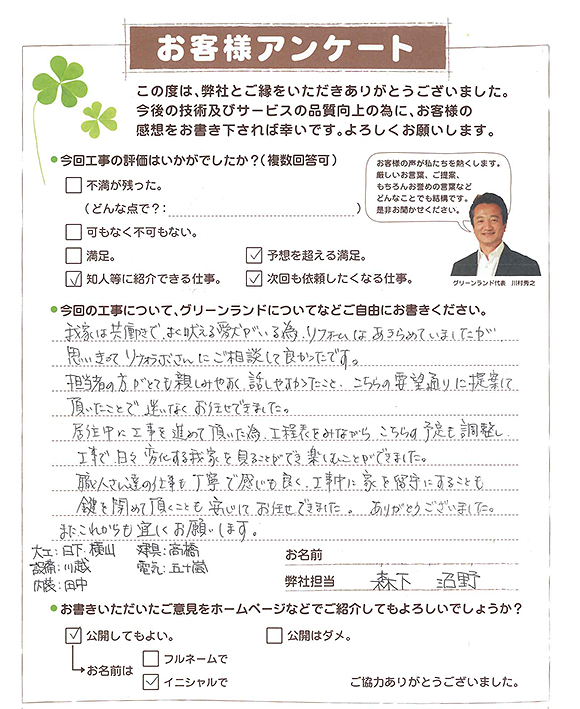 お客様アンケート
この度は、弊社とご縁をいただきありがとうございました。
今後の技術及びサービスの品質向上の為に、お客様の
感想をお書き下されば幸いです。よろしくお願いします。
●今回工事の評価はいかがでしたか？(複数回答可)
□不満が残った。
(どんな点で？: )
□可もなく不可もない。
□満足。 ☑予想を超える満足。
☑知人等に紹介できる仕事。 ☑次回も依頼したくなる仕事。
お客様の声が私たちを熱くします。
厳しいお言葉、ご提案、
もちろんお誉めの言葉など
どんなことでも結構です。
是非お聞かせください。
グリーンランド代表 川村秀之
●今回の工事について、グリーンランドについてなどご自由にお書きください。
我家は共働きで、よく吠える愛犬がいる為、リフォームはあきらめていましたが
思いきってリフォラボさんにご相談して良かったです。
担当者の方がとても親しみやすく、話しやすかったこと、こちらの要望通りに提案して
頂いたことで迷いなくお任せできました。
居住中に工事を進めて頂いた為、工程表をみながら、こちらの予定も調整し
工事で日々変化する我家を見ることができ楽しむことができました。
職人さん達の仕事も丁寧で感じも良く、工事中に家を留守にすることも
鍵を閉めて頂くことも安心してお任せできました。ありがとうございました。
またこれからも宜しくお願いします。
大工:日下、横山 建具:高橋
設備:川越 電気:五十嵐
内装:田中
お名前
弊社担当 森下 沼野
●お書きいただいたご意見をホームページなどでご紹介してもよろしいでしょうか？
☑公開してもよい。 □公開はダメ。
→お名前は □フルネームで
☑イニシャルで
ご協力ありがとうございました。